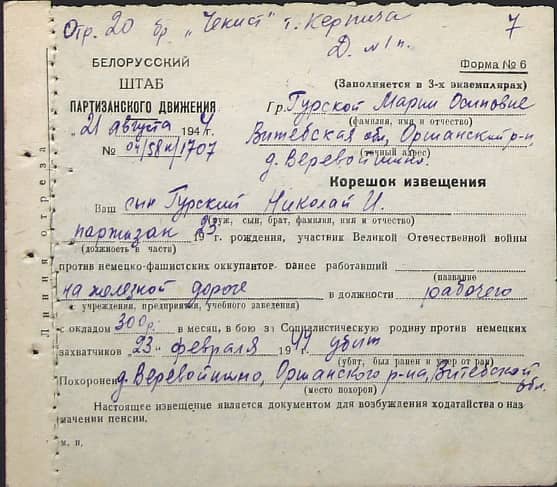 Отр. 20 бр „Чекист" т. Керпича 7
Д. №1 п.
БЕЛОРУССКИЙ
ШТАБ
ПАРТИЗАНСКОГО ДВИЖЕНИЯ
„21 августа 1944 г.
№ 04/58н/1707
Форма № 6
(Заполняется в 3-х экземплярах)
Гр. Гурской Марии Осиповне
(фамилия, имя и отчество)
Витебская обл, Оршанский р-н
(точный адрес)
д. Веревойшино.
Корешок извещения
Ваш сын Гурский Николай И.
муж, сын, брат, фамилия, имя и отчество)
партизан 1923 г. рождения, участник Великой Отечественной войны
(должность в части)
против немецко-фашистских оккупантов ранее работавший
(название
на железной дороге в должности рабочего
учреждения, предприятия, учебного заведения)
с окладом 300 р. в месяц, в бою за Социалистическую родину против немецких
захватчиков „23" февраля 1944 убит
(убит, был ранен и умер от ран)
Похоронен д. Веревойшино, Оршанского р-на, Витебской обл.
(место похорон)
Настоящее извещение является документом для возбуждения ходатайства о наз
начении пенсии.
м. п.
Линия отреза